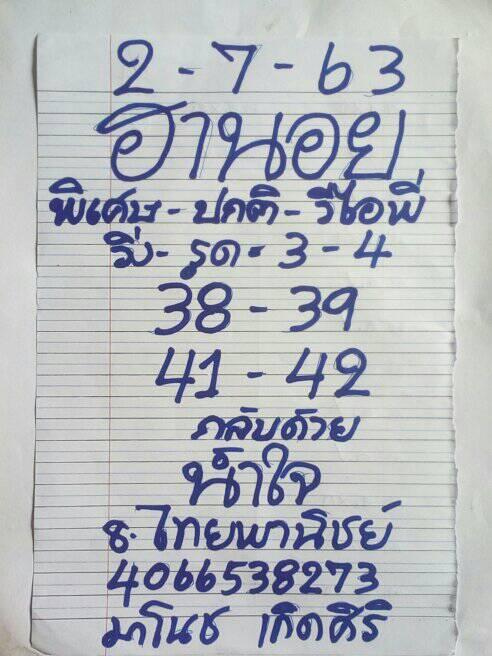 2-7-63
ฮานอย
พิเศษ-ปกติ-วีไอพี
วิ่ง-รูด-3-4
38-39
41-42
กลับด้วย
น้ำใจ
ธ.ไทยพานิชย์
4066538273
มาโนช เกิดศิริ